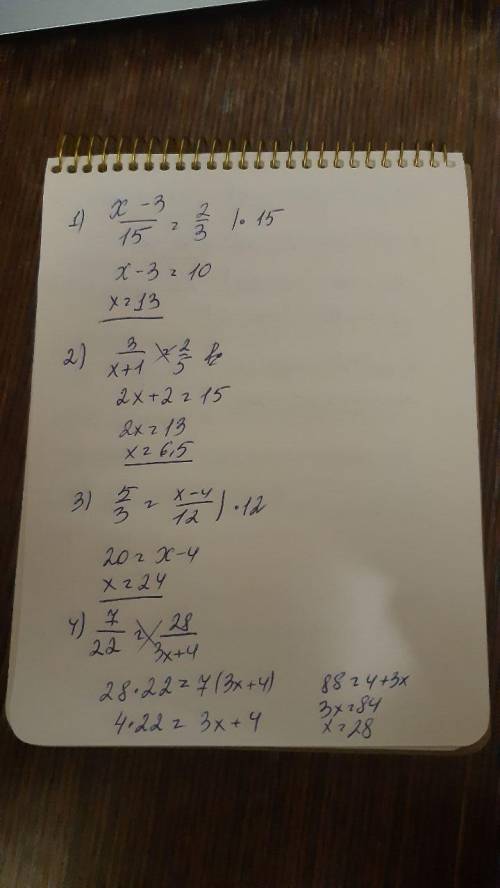 1) x-3/15 = 2/3 | · 15
x-3 = 10
x = 13
2) 3/x+1 = 2/5
2x+2 = 15
2x = 13
x = 6,5
3) 5/3 = x-4/12 | · 12
20 = x-4
x = 24
4) 7/22 = 28/3x+4
28 · 22 = 7(3x+4)
4 · 22 = 3x+4
88 = 4+3x
3x = 84
x = 28